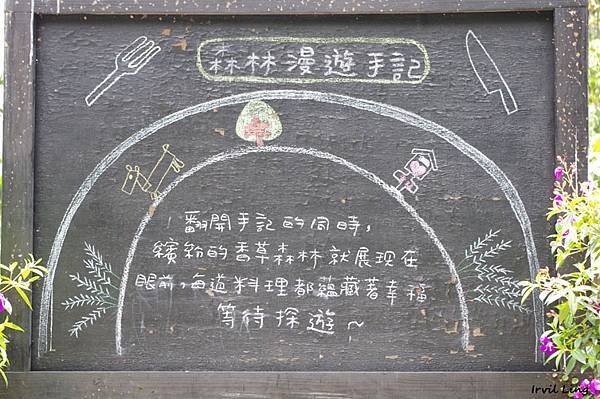 森林漫遊手記
翻開手記的同時,
繽紛的香草森林就展現在
眼前,每道料理都蘊藏著幸福
等待探遊~
Irvil Ling